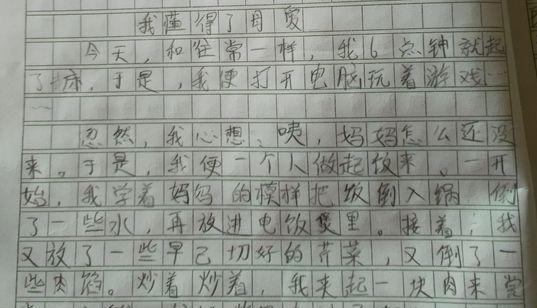 我懂得了母爱
今天,和往常一样,我6点钟就起
了床,于是,我便打开电脑玩着游戏…
…
忽然,我心想,咦,妈妈怎么还没
来。于是,我便一个人做起饭来。一开
始,我学着妈妈的模样把饭倒入锅,倒
了一些水,再放进电饭煲里。接着,我
又放了一些早已切好的芹菜,又倒了一
些肉馅。炒着炒着,我夹起一块肉来尝